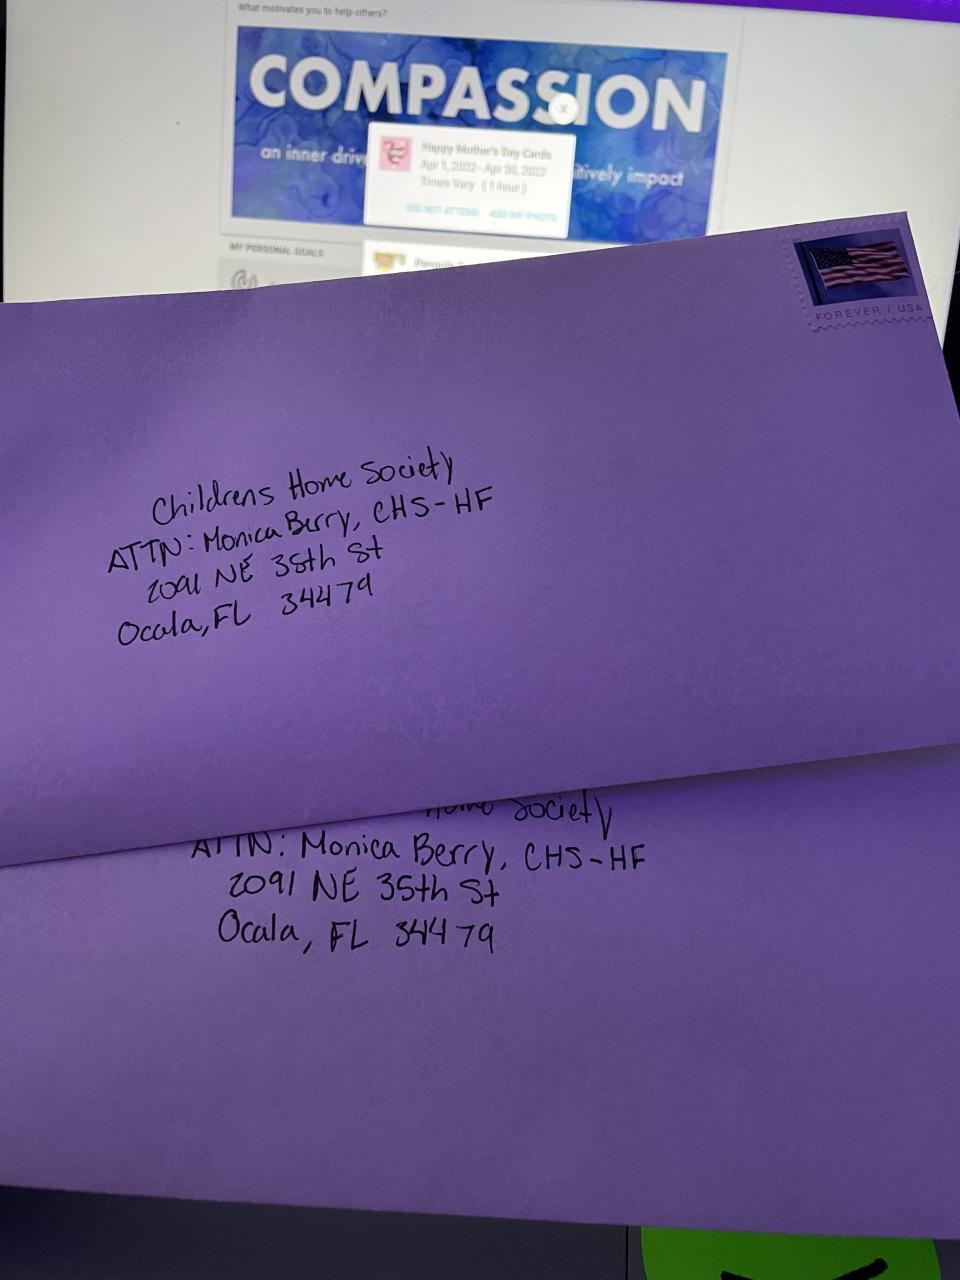 What motivates you to help others?
COMPASSION
an inner drive
itively impact
Happy Mother's Day Cards
Apr 1, 2022 - Apr 30, 2022
Times Vary (1 hour)
DID NOT ATTEND ADD MY PHOTO
MY PERSONAL GOALS
FOREVER / USA
Childrens Home Society
ATTN: Monica Berry, CHS-HF
2091 NE 35th St
Ocala, FL 34479
Home Society
ATTN: Monica Berry, CHS-HF
2091 NE 35th St
Ocala, FL 34479